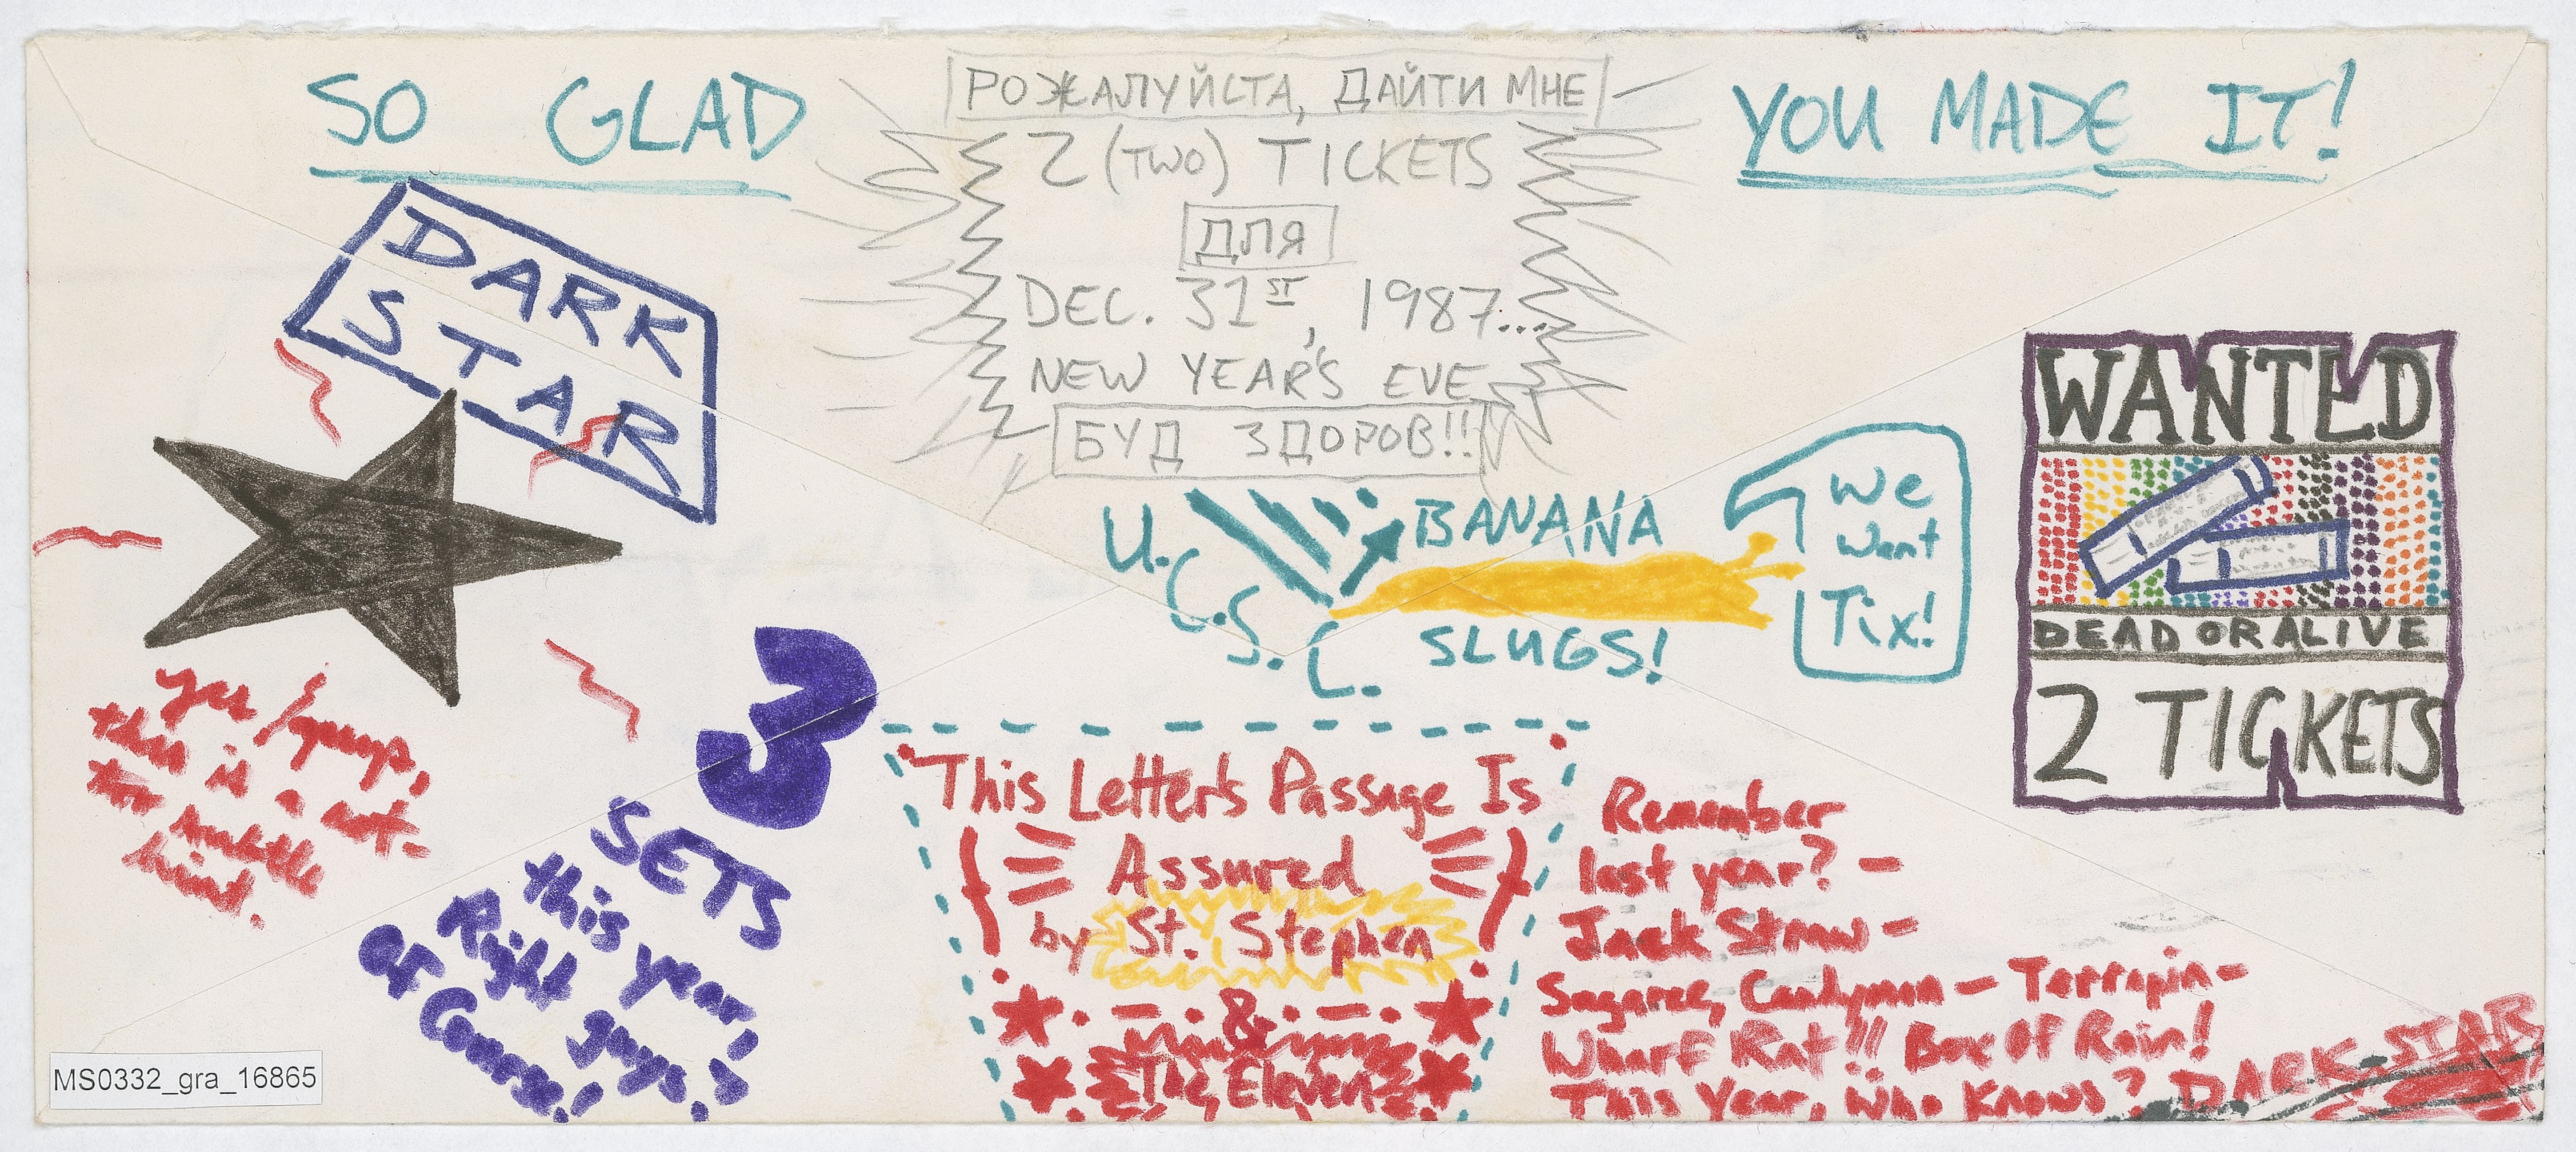 SO GLAD
РОЖАЛУЙСТА, ДАЙТИ МНЕ
2 (TWO) TICKETS
ДЛЯ
DEC. 31ST, 1987...
NEW YEAR'S EVE
БУД ЗДОРОВ!!
YOU MADE IT!
DARK
STAR
yes, guys,
this is a not-
too subtle
hint.
3
SETS
this year,
Right guys?
Of Course!
U.C.S.C.
BANANA
SLUGS!
We
want
Tix!
WANTED
DEAD OR ALIVE
2 TICKETS
This Letter's Passage Is
Assured
by St. Stephen
&
The Eleven
Remember
last year? –
Jack Straw –
Sugaree, Candyman – Terrapin –
Wharf Rat!!! Box Of Rain!
This Year, Who Knows? DARK STAR
MS0332_gra_16865